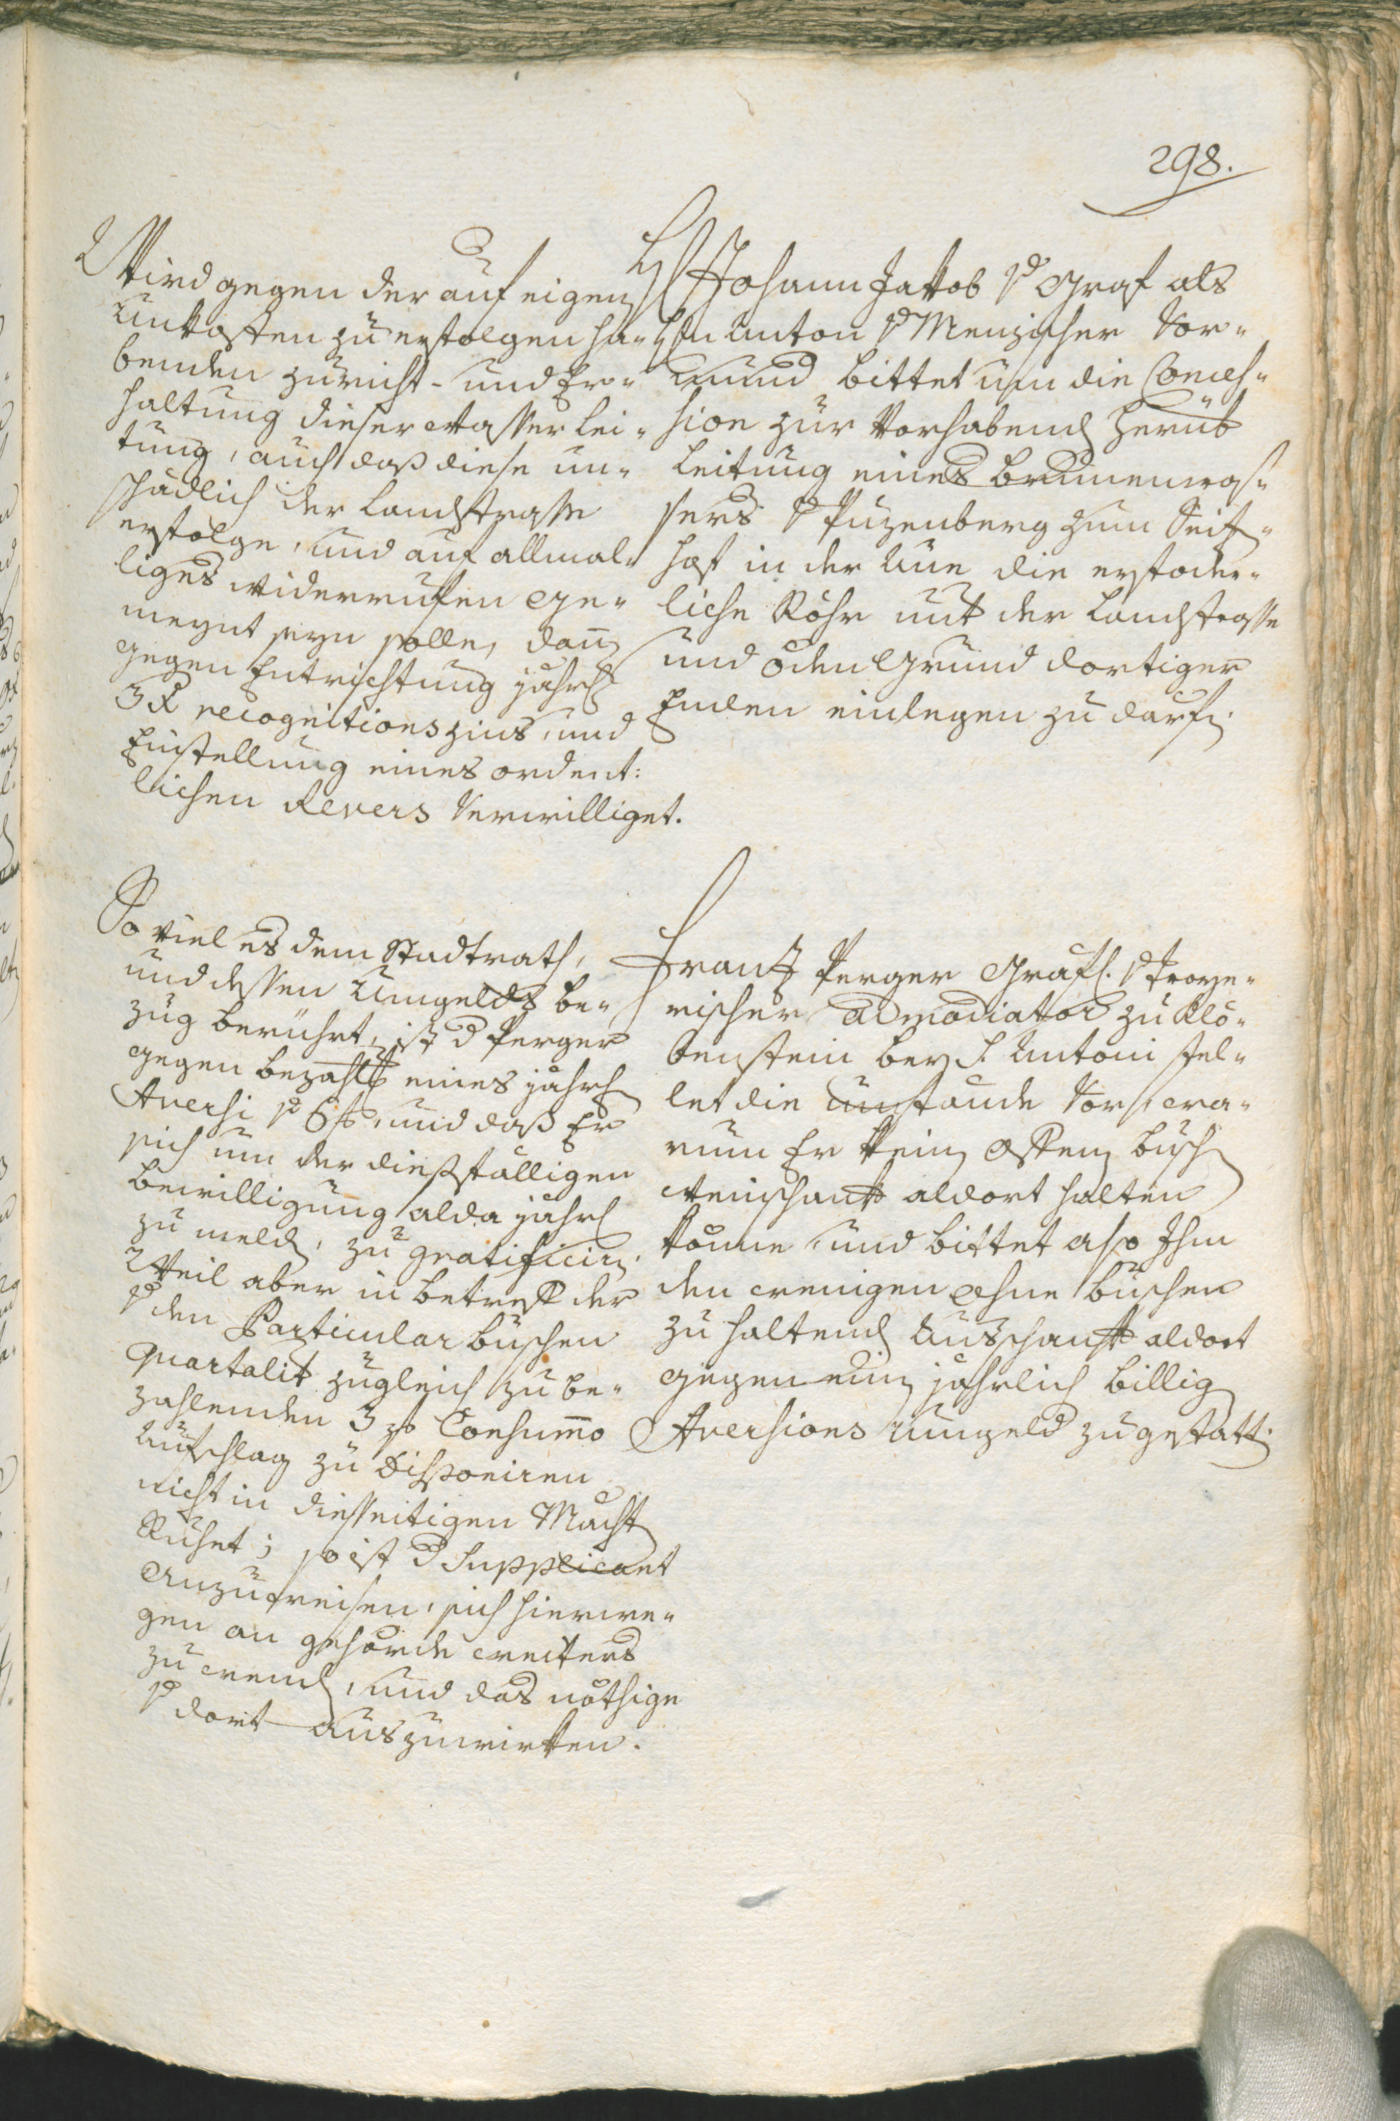 298.
Wird gegen der auf eigen
Unkosten zu erfolgen ha-
benden zuricht- und Er-
haltung dieser Wasserlei-
tung, auch daß diese un-
schädlich der Landstrasse
erfolge, und auf allmal-
liges widerruffen ge-
meynt seyn solle, dann
gegen Entrichtung jährl
3 x recognitionszins, und
Einstellung eines ordent:
lichen Revers verwilliget.
H Johann Jakob v Graf als
Hn Anton v Menzischer Vor-
mund bittet um die Conces-
sion zur vorhabend herüb
leitung eines Brunenwas-
sers v Puzenberg zum Reif-
hof in der Aue die erforder-
liche Röhr mit der Landstrasse
und öden Grund dortiger
Enden einlegen zu därfen.
So viel es dem Stadtrath,
und dessen Umgelds be-
zug berührt, ist d Perger
gegen bezahlg eines jährl
Aversi v 6 f, und daß Er
sich um der dießfälligen
bewilligung alda jährl
zu meld, zu gratificirn.
Weil aber in betreff der
v den Particular büschen
quartalit zugleich zu be-
zahlenden 3 f Consumo
Aufschlag zu Disponiren
nicht in diesseitigen Macht
Ruhet; so ist d Supplicant
anzuweisen, sich hierwe-
gen an gehörde weiters
zu wend, und das nöthige
v dort auszuwirken.
Frantz Perger Gräfl. v Troye-
rischer admodiator zu Klo-
benstein bey S. Antoni stel-
let die umstände vor, wa-
rum Er kein offen büsch
weinschank aldort halten
könne, und bittet also Ihm
den wenigen ohne büschen
zu haltend Ausschank aldort
gegen ein jährlich billig
Aversions Umgeld zu gestatt.